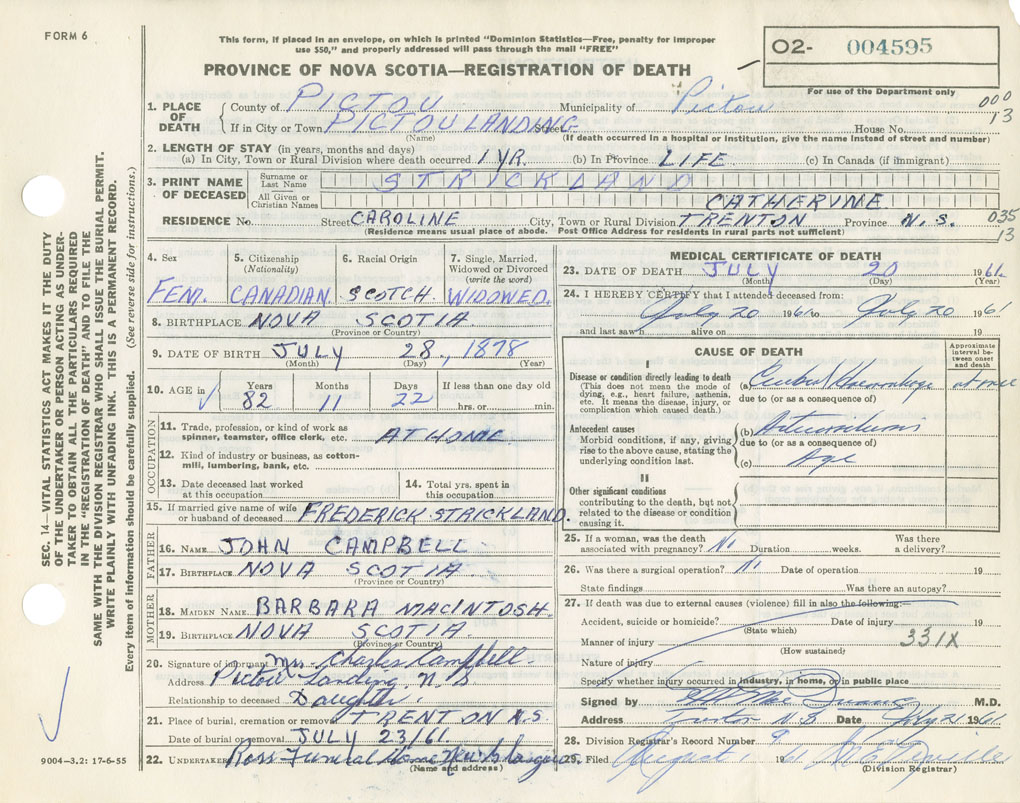 FORM 6
This form, if placed in an envelope, on which is printed "Dominion Statistics—Free, penalty for improper
use $50," and properly addressed will pass through the mail "FREE"
PROVINCE OF NOVA SCOTIA—REGISTRATION OF DEATH
O2- 004595
For use of the Department only
000
13
1. PLACE OF DEATH
County of PICTOU Municipality of Pictou
If in City or Town PICTOU LANDING Street House No.
(Name) (If death occurred in a hospital or institution, give the name instead of street and number)
2. LENGTH OF STAY (in years, months and days)
(a) In City, Town or Rural Division where death occurred 1 YR. (b) In Province LIFE. (c) In Canada (if immigrant)
3. PRINT NAME OF DECEASED
Surname or Last Name STRICKLAND
All Given or Christian Names CATHERINE.
RESIDENCE No. Street CAROLINE City, Town or Rural Division TRENTON Province N.S.
035
13
(Residence means usual place of abode. Post Office Address for residents in rural parts not sufficient)
4. Sex
FEM.
5. Citizenship (Nationality)
CANADIAN
6. Racial Origin
SCOTCH.
7. Single, Married, Widowed or Divorced (write the word)
WIDOWED.
8. BIRTHPLACE NOVA SCOTIA.
(Province or Country)
9. DATE OF BIRTH JULY 28, 1878
(Month) (Day) (Year)
10. AGE in Years Months Days If less than one day old
82 11 22 hrs. or min.
OCCUPATION
11. Trade, profession, or kind of work as
spinner, teamster, office clerk, etc. AT HOME
12. Kind of industry or business, as cotton-
mill, lumbering, bank, etc.
13. Date deceased last worked
at this occupation
14. Total yrs. spent in
this occupation
15. If married give name of wife
or husband of deceased FREDERICK STRICKLAND.
FATHER
16. NAME JOHN CAMPBELL
17. BIRTHPLACE NOVA SCOTIA.
(Province or Country)
MOTHER
18. MAIDEN NAME BARBARA MACINTOSH.
19. BIRTHPLACE NOVA SCOTIA.
(Province or Country)
20. Signature of informant Mrs Charles Campbell
Address Pictou Landing, N S
Relationship to deceased Daughter.
21. Place of burial, cremation or removal TRENTON N.S.
Date of burial or removal JULY 23/61.
22. UNDERTAKER Ross Funeral Home New Glasgow
(Name and address)
MEDICAL CERTIFICATE OF DEATH
23. DATE OF DEATH JULY 20 1961.
(Month) (Day) (Year)
24. I HEREBY CERTIFY that I attended deceased from:
July 20 1961 to July 20 1961
and last saw h alive on 19
CAUSE OF DEATH
Approximate interval between onset and death
I
Disease or condition directly leading to death
(This does not mean the mode of
dying, e.g., heart failure, asthenia,
etc. It means the disease, injury, or
complication which caused death.)
(a) Cerebral Haemorrhage
due to (or as a consequence of)
Antecedent causes
Morbid conditions, if any, giving
rise to the above cause, stating the
underlying condition last.
(b)
due to (or as a consequence of)
(c) Age
II
Other significant conditions
contributing to the death, but not
related to the disease or condition
causing it.
25. If a woman, was the death Was there
associated with pregnancy? No Duration weeks. a delivery?
26. Was there a surgical operation? No Date of operation 19
State findings Was there an autopsy?
27. If death was due to external causes (violence) fill in also the following:—
Accident, suicide or homicide? Date of injury 19
(State which)
Manner of injury 331X
(How sustained)
Nature of injury
Specify whether injury occurred in industry, in home, or in public place
Signed by M.D.
Address Date July 21 1961.
28. Division Registrar's Record Number 9
29. Filed August 1 1961
(Division Registrar)
SEC. 14—VITAL STATISTICS ACT MAKES IT THE DUTY
OF THE UNDERTAKER OR PERSON ACTING AS UNDER-
TAKER TO OBTAIN ALL THE PARTICULARS REQUIRED
IN THE "REGISTRATION OF DEATH" AND TO FILE THE
SAME WITH THE DIVISION REGISTRAR WHO SHALL ISSUE THE BURIAL PERMIT.
WRITE PLAINLY WITH UNFADING INK. THIS IS A PERMANENT RECORD.
Every item of information should be carefully supplied. (See reverse side for instructions.)
9004-3.2: 17-6-55